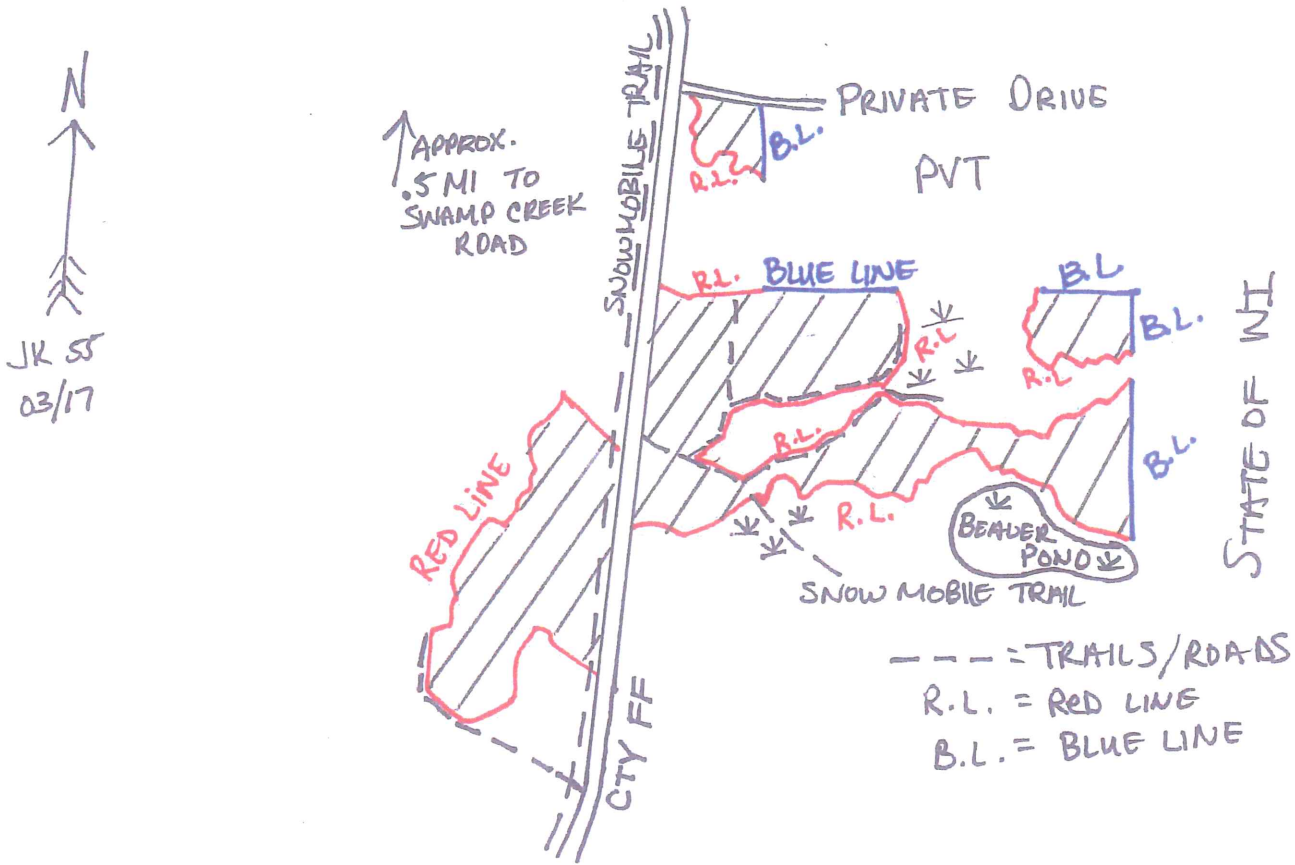 N
JK 55
03/17
APPROX.
.5 MI TO
SWAMP CREEK
ROAD
SNOWMOBILE TRAIL
PRIVATE DRIVE
B.L.
R.L.
PVT
R.L.
BLUE LINE
R.L
B.L
B.L.
R.L
STATE OF WI
RED LINE
R.L.
B.L.
R.L.
BEAVER
POND
SNOW MOBILE TRAIL
CTY FF
--- = TRAILS/ROADS
R.L. = RED LINE
B.L. = BLUE LINE